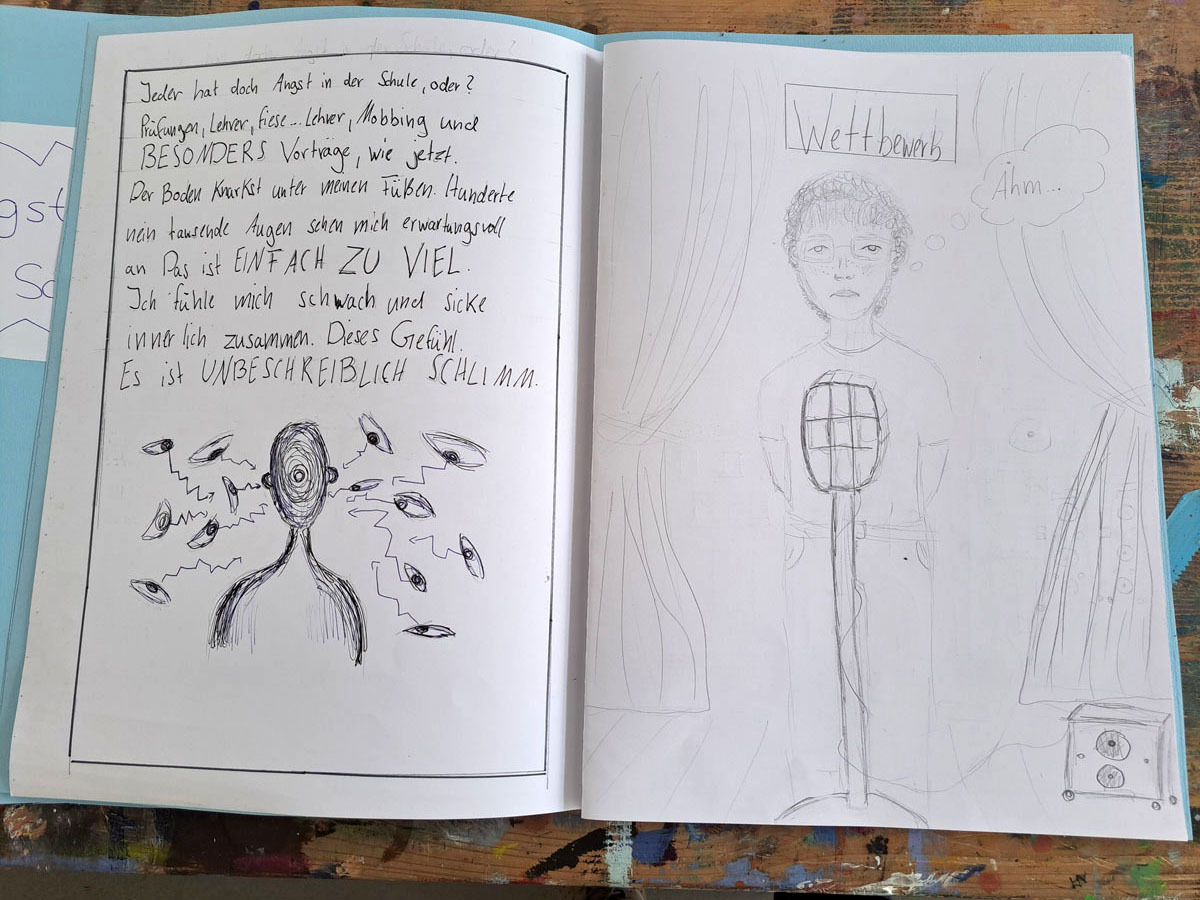 gst
Sc
Jeder hat doch Angst in der Schule, oder?
Prüfungen, Lehrer, fiese... Lehrer, Mobbing und
BESONDERS Vorträge, wie jetzt.
Der Boden knarkst unter meinen Füßen. Hunderte
nein tausende Augen sehen mich erwartungsvoll
an Das ist EINFACH ZU VIEL.
Ich fühle mich schwach und sicke
innerlich zusammen. Dieses Gefühl.
Es ist UNBESCHREIBLICH SCHLIMM.
Wettbewerb
Ähm...